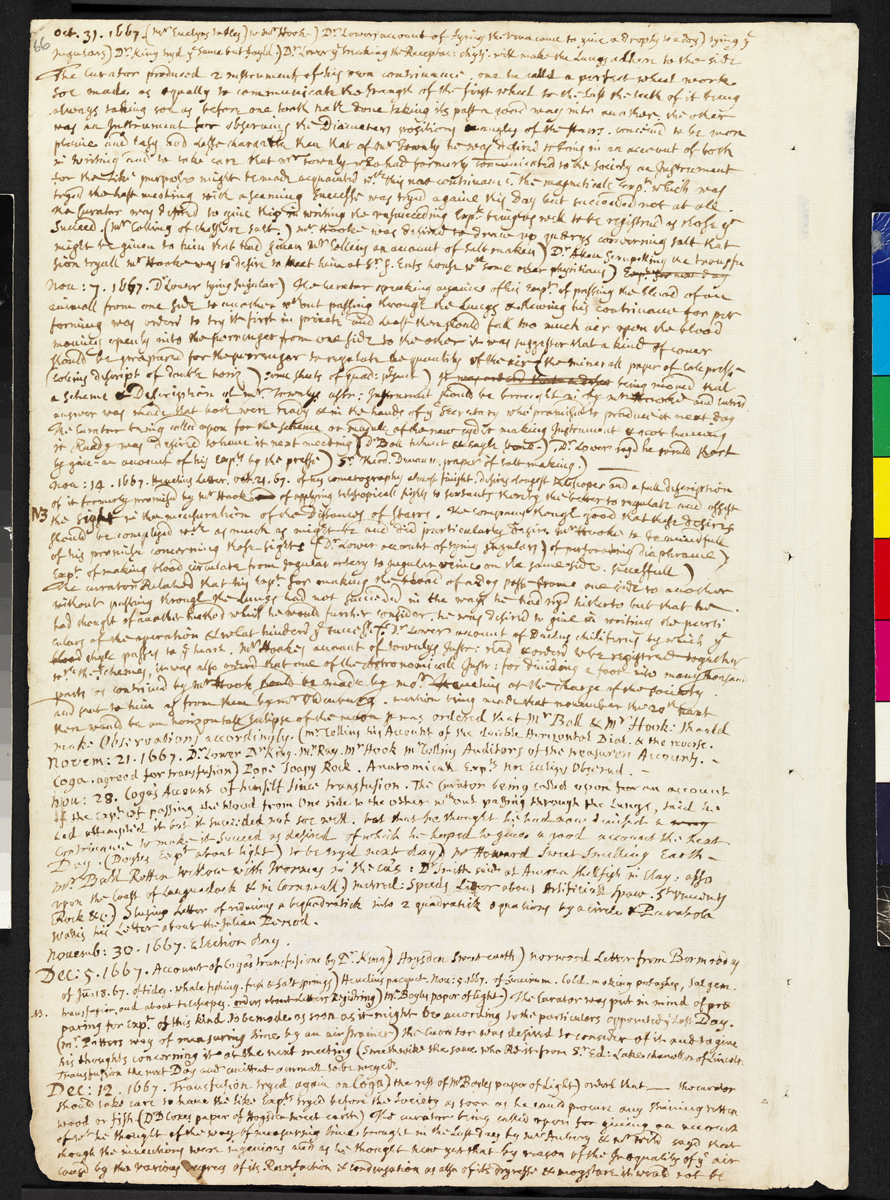 66
Oct. 31. 1667. (Mr Euclyns tables) to Mr Hook.) Dr Lowers account of tying the vena cava to give a dropsy to a dog) tying ye
Jugulars) Dr King tryd ye same but fayld.) Dr Lower ye breaking the Receptac: chyli: will make the Lungs adhere to the side
The Curator produced 2 instruments of his own contrivance. one he calld a perfect wheel work
soe made, as equally to communicate the strength of the first wheel to the last the teeth of it being
always taking soe as before one tooth hath done taking its past a good way into another, the other
was an Instrument for observing the Diameters positions & angles of the starrs. conceivd to be more
plaine and easy and lesse chargable then that of Mr Townly he was desired to bring in an account of both
in writing and to take care that Mr Townly who had formerly communicated to the society an Instrument
for the like purposes might be made acquainted wth this new contrivance. the magneticall Expt which was
tryed the last meeting with a seeming successe was tryd againe this day but succeeded not at all.
the curator was desired to give this in writing the unsucceeding Expts being as well to be registred as those yt
succeed. (Mr Colling of cheshire salt.) Mr Hooke was desired to draw up quærys concerning salt that
might be given to him that had given Mr Colling an account of salt making) Dr Allen scrupelling the transfu
sion tryall Mr Hooke was to desire to meet him at Sr G. Ents house wth some other physitians)
Nov. 7. 1667. Dr Lower tying Jugular) The Curator speaking againe of his Expt of passing the blood of an
animall from one side to another wthout passing through the Lungs & shewing his contrivance for per
forming was orderd to try it first in private and least there should fall too much air upon the blood
moving openly into the passenger from one side to the other it was suggested that a kind of cover
should be prepared for the passenger to regulate the quantity of the air (the minerall paper of Colepress
Colling descript of double horiz) some sheets of quad:) it was orderd that a desc being moved that
a scheme & Description of Mr Townlys astr: Instrument should be brought in by Mr Hooke and
answer was made that both were ready & in the hands of ye secretary who promised to produce it next day
The Curator being calld upon for the scheme or module of the new cyder making Instrument & not having
it Ready was desired to have it next meeting (Dr Ball & eagle bone) (Dr Lower sayd he would shortly
be given an account of his Expts by the presse) Sr Theo. Devaux. paper of salt making.)
Nov. 14. 1667. Hevelius Letter. oct. 21. 67. of his cometography almost finisht. desiring longest telescopes and a full description
of it formerly promised by Mr Hook of applying telescopicall sights to sextants thereby the better to regulate and assist
NB the sight in the mensuration of the Distances of starrs. the company thought good that these desires
should be complyed with as much as might be and did particularly desire Mr Hooke to be mindfull
of his promise concerning those sights (Dr Lower account of tying jugulars) of diaphrame)
Expt of making blood circulate from jugular artery to jugular veine on the same side. successfull)
The curator Related that his Expt for making the blood of a dog passe from one side to another
without passing through the Lungs had not succeeded in the ways he had tryd hitherto but that he
had thought of another method which he would further consider. he was desired to give in writing the parti
culars of the operation & what hinderd ye successe. (Dr Lowers account of Ductus chiliferus by which ye
blood chyle passes to ye heart. Mr Hookes account of Townlys Instr: read & orderd to be registred together
wth the schemes, it was also orderd that one of the Astronomicall Instr: for dividing a foot into many thousand
parts as contrived by Mr Hook should be made by at the charge of the society.
and sent to him as from them by Mr Oldenburg. mention being made that november the 20th next
there would be an horizontall Eclipse of the moon it was ordered that Mr Ball & Mr Hook should
make Observations accordingly. (Mr Collins his Account of the double Horizontal Dial. & the reverse.
Novem: 21. 1667. Dr Lower Dr King. Mr Ray. Mr Hook Mr Collins Auditors of the treasurers Accounts.
Coga. agreed for transfusion) Pope Soapy Rock. Anatomicall Expts not Eclips Observd.
Nov: 28. Coga's Account of himself since transfusion. The Curator being called upon for an account
of the Expt. of passing the blood from One side to the other without passing through the Lungs, said he
had attempted it but it succeeded not soe well. but that he thought he had now devised a
contrivance to make it succeed as desired of which he hoped to give a good account the next
Day. (Boyles Expt. about light) to be tryd next day) Mr Howard Sweet Smelling Earth.
Mr Ball Rotten Willow with Wormes in the : Dr Smith said at Ancona shellfish in clay, also
upon the Coast of Languedock & in Cornwall) mctred: Speeds Letter about Artificiall Spaw. St Vincents
Rock &c.) Slusius Letter of reducing a biquadratick into 2 quadratick equations by a circle & Parabola
Wallis his Letter about the Julian Period.
Novemb: 30. 1667. Election day.
Dec: 5. 1667. Account of Coga's transfusions by Dr King) Hogsden sweet earth) norwood Letter from Bermooday
of Ju: 18. 67. of tides. whale fishing. fresh & salt springs) Hevelius pacquet. Nov: 5. 1667. of Succinum. Cold. making potashes, sal gem.
NB. transfusion. and about telescopes. orders about Letters Registring) Mr Boyles paper of Light) The Curator was put in mind of pre
paring for Expts. of this kind to be made as soon as it might be according to the particulars appointed ye last Day.
(Mr Patters way of measuring time by an air strainer) the Curator was desired to consider of it and to give
his thoughts concerning it at the next meeting (Smethwike the same who Rd it from Sr Ed: Lake chancellor of Lincoln
Transfusion the next Day and another animall to be neezed.
Dec: 12. 1667. Transfusion tryed again on Coga) the rest of Mr Boyles paper of Light) orderd that the curator
should take care to have the like Expts tryed before the Society as soon as he could procure any shining rotten
wood or fish (Dr D Coxes paper of Hogsden sweet earth) The curator being called upon for giving an account
of wt he thought of the way of measuring time brought in the last day by Mr Aubery & Mr sayd that
though the inventions were ingenious and as he thought new yet that by reason of the Inequality of ye air
caused by the various degrees of its Rarefaction & condensation as also of its drynesse & moysture it would not be